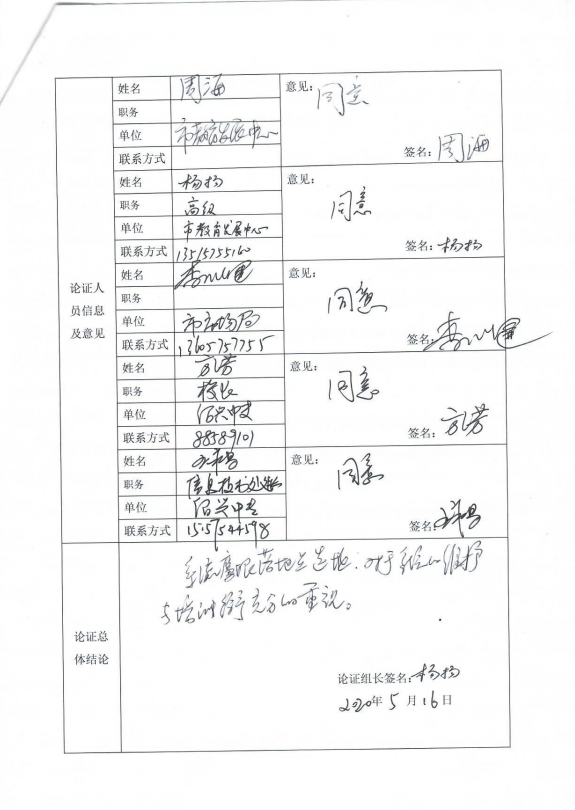 姓名 周海 意见: 同意
职务
单位 市教育发展中心
联系方式 签名: 周海
姓名 杨扬 意见: 同意
职务 高级
单位 市教育发展中心
联系方式 13515755160 签名: 杨扬
论证人员信息及意见
姓名 意见: 同意
职务
单位 市市场局
联系方式 13605757755 签名:
姓名 方芳 意见: 同意
职务 校长
单位 绍兴中专
联系方式 88589101 签名: 方芳
姓名 意见: 同意
职务
单位 绍兴中专
联系方式 15157544598 签名:
论证总体结论
对于系统的维护
与培训给予充分的重视。
论证组长签名: 杨扬
2020年5月16日